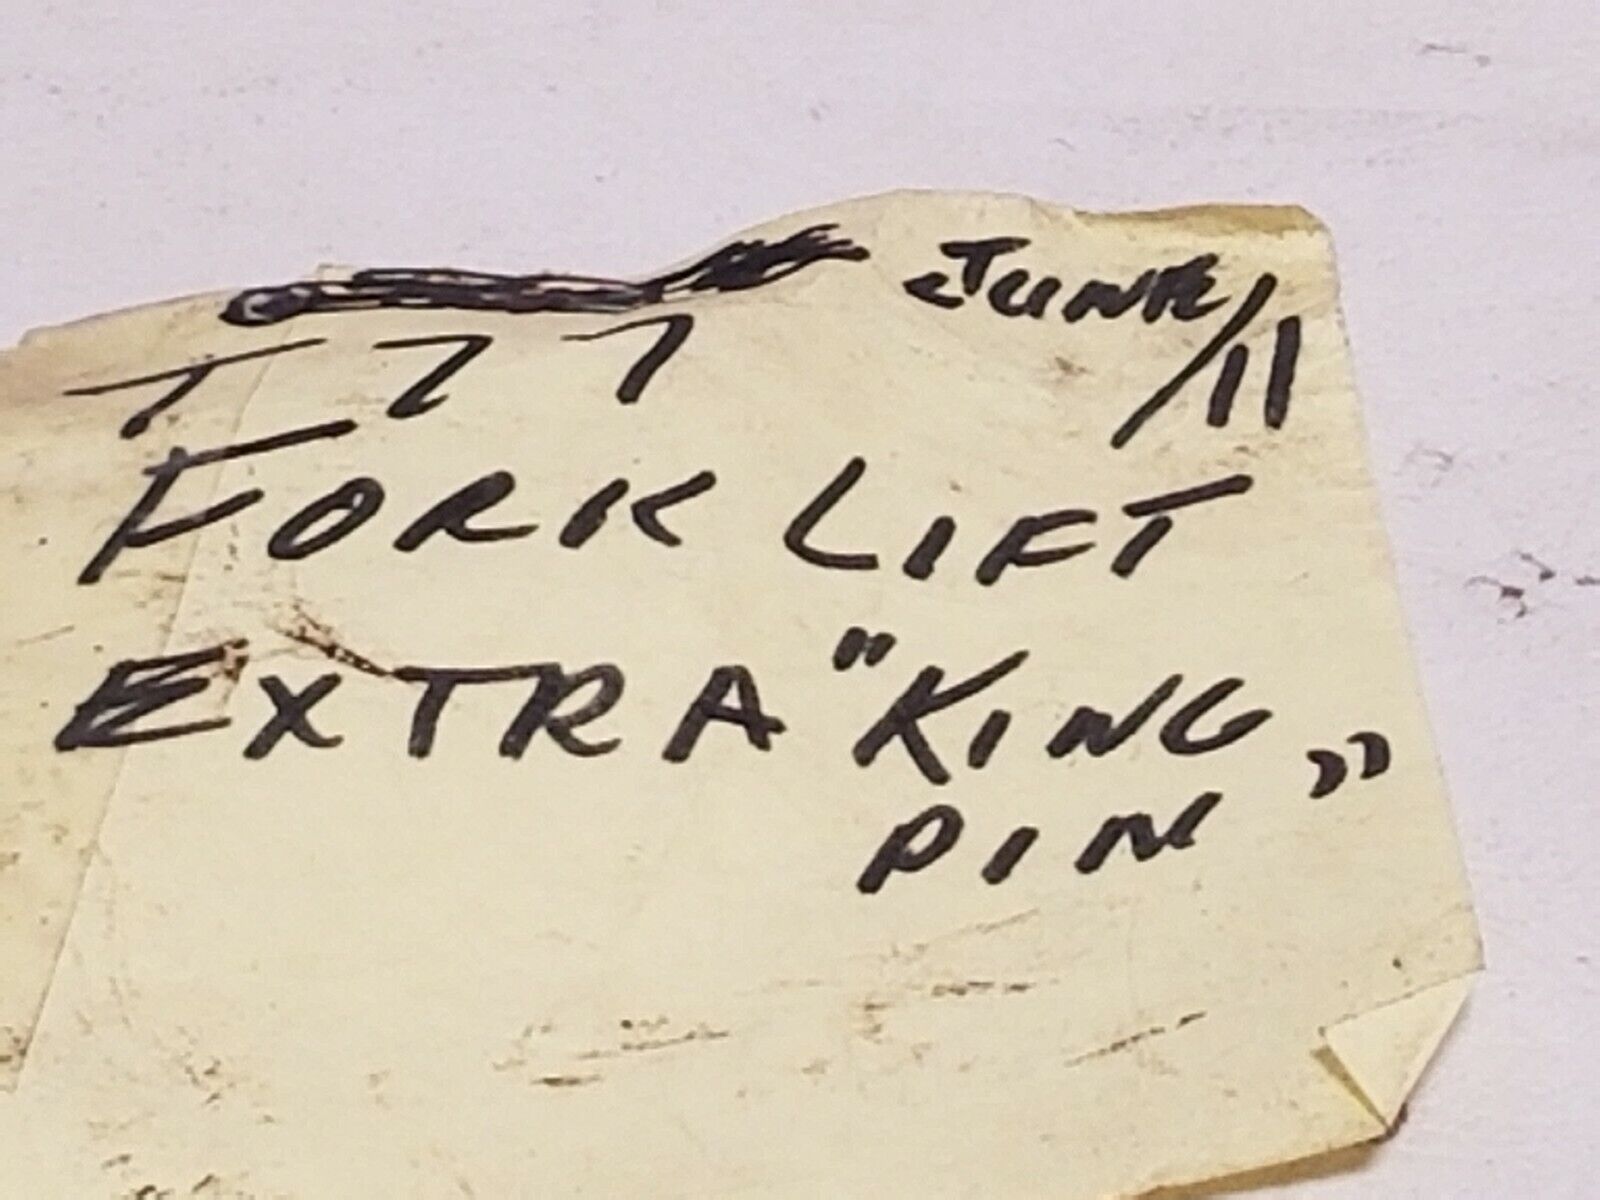 JUNK/11
T77
FORK LIFT
EXTRA "KING
PIN"